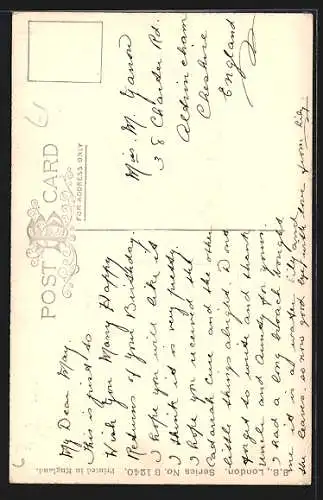 POST CARD
FOR ADDRESS ONLY
My Dear May
This is just to
Wish You Many Happy
Returns of your Birthday.
I hope you will like it
I think it is very pretty.
I hope you received the
Catarrah cure and the other
little things alright. Dont
forget to write and thank
Uncle and Aunty for yours.
I had a long broach bought
me it is of water lily and
the leaves. so now good bye with love from Lily
Miss. M. Ganon
38 Charter Rd.
Altrincham
Cheshire
England
B.B., London. Series No. B 1240. Printed in England.